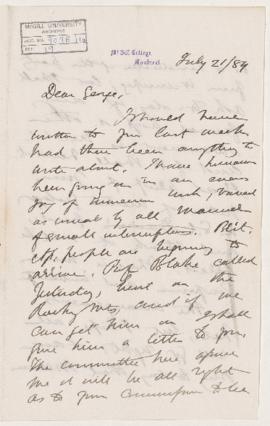 McGILL UNIVERSITY
ARCHIVES
ACC. NO.
REF. 19
McGill College,
Montreal.
July 21/84
Dear George,
I should have
written to you last week
had there been anything to
write about. I have however
been going on in an even
way of summer work, varied
as usual by all manner
of small interruptions. Brit.
people are beginning to
arrive. Prof Blake called
Yesterday, here on the
Rocky Mts, and if we
can get him on I shall
give him a letter to you.
The committee here assure
me it will be all right
as to your